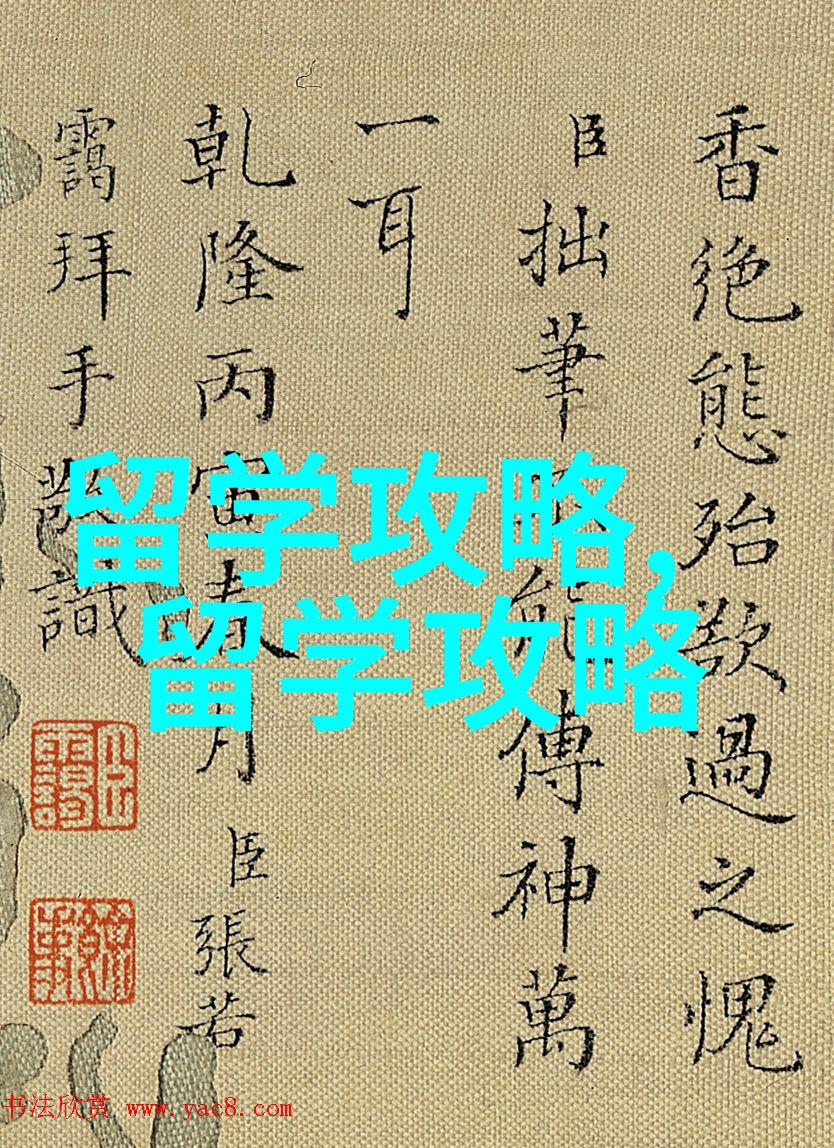 香絶態殆欲過之愧
臣拙筆不能傳神萬
一耳
乾隆丙寅春月臣張若
靄拜手敬識
留学攻略,
留学攻略
书法欣赏 www.yac8.com